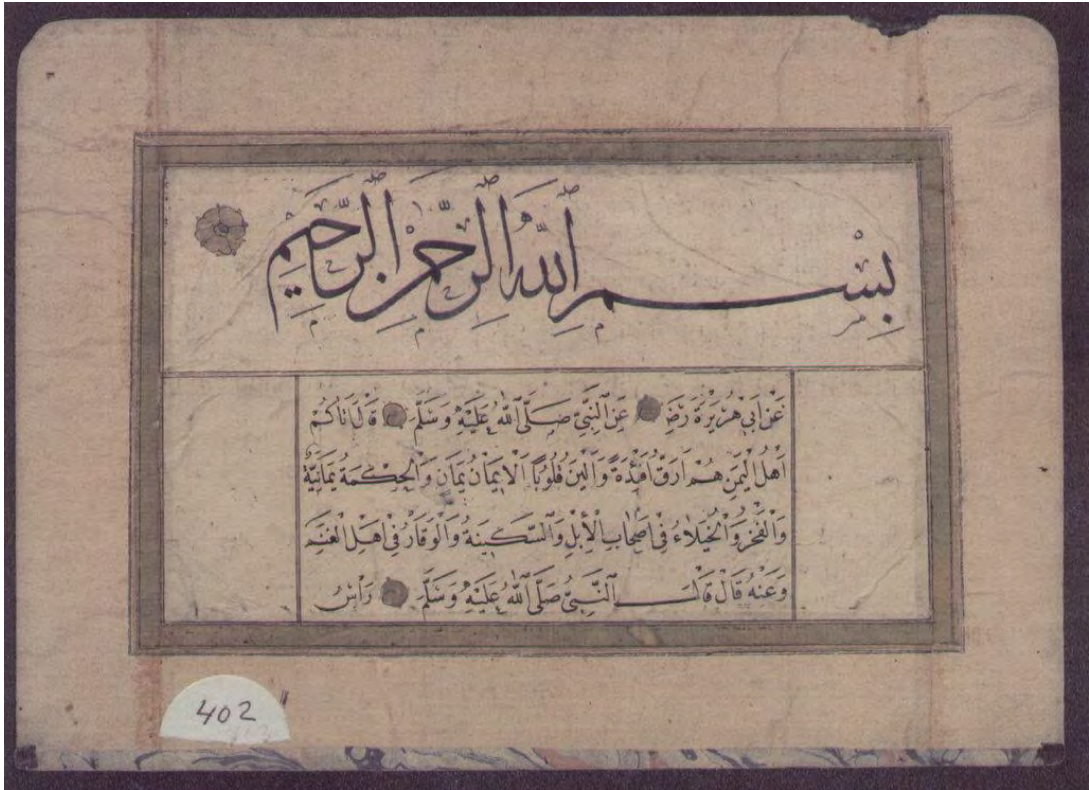 بِسْمِ اللَّهِ الرَّحْمَنِ الرَّحِيمِ
عَنْ اَبِى هُرَيْرَةَ رَضِيَ عَنِ النَّبِيِّ صَلَّى اللّٰهُ عَلَيْهِ وَسَلَّمَ قَالَ اَتَاكُمْ
اَهْلُ الْيَمَنِ هُمْ اَرَقُّ اَفْئِدَةً وَاَلْيَنُ قُلُوبًا اَلْاِيمَانُ يَمَانٍ وَالْحِكْمَةُ يَمَانِيَّةٌ
وَالْفَخْرُ وَالْخُيَلَاءُ فِى اَصْحَابِ الْأِبِلِ وَالسَّكِينَةُ وَالْوَقَارُ فِى اَهْلِ الْغَنَمِ
وَعَنْهُ قَالَ قَالَ النَّبِىُّ صَلَّى اللّٰهُ عَلَيْهِ وَسَلَّمَ رَاْسُ
402